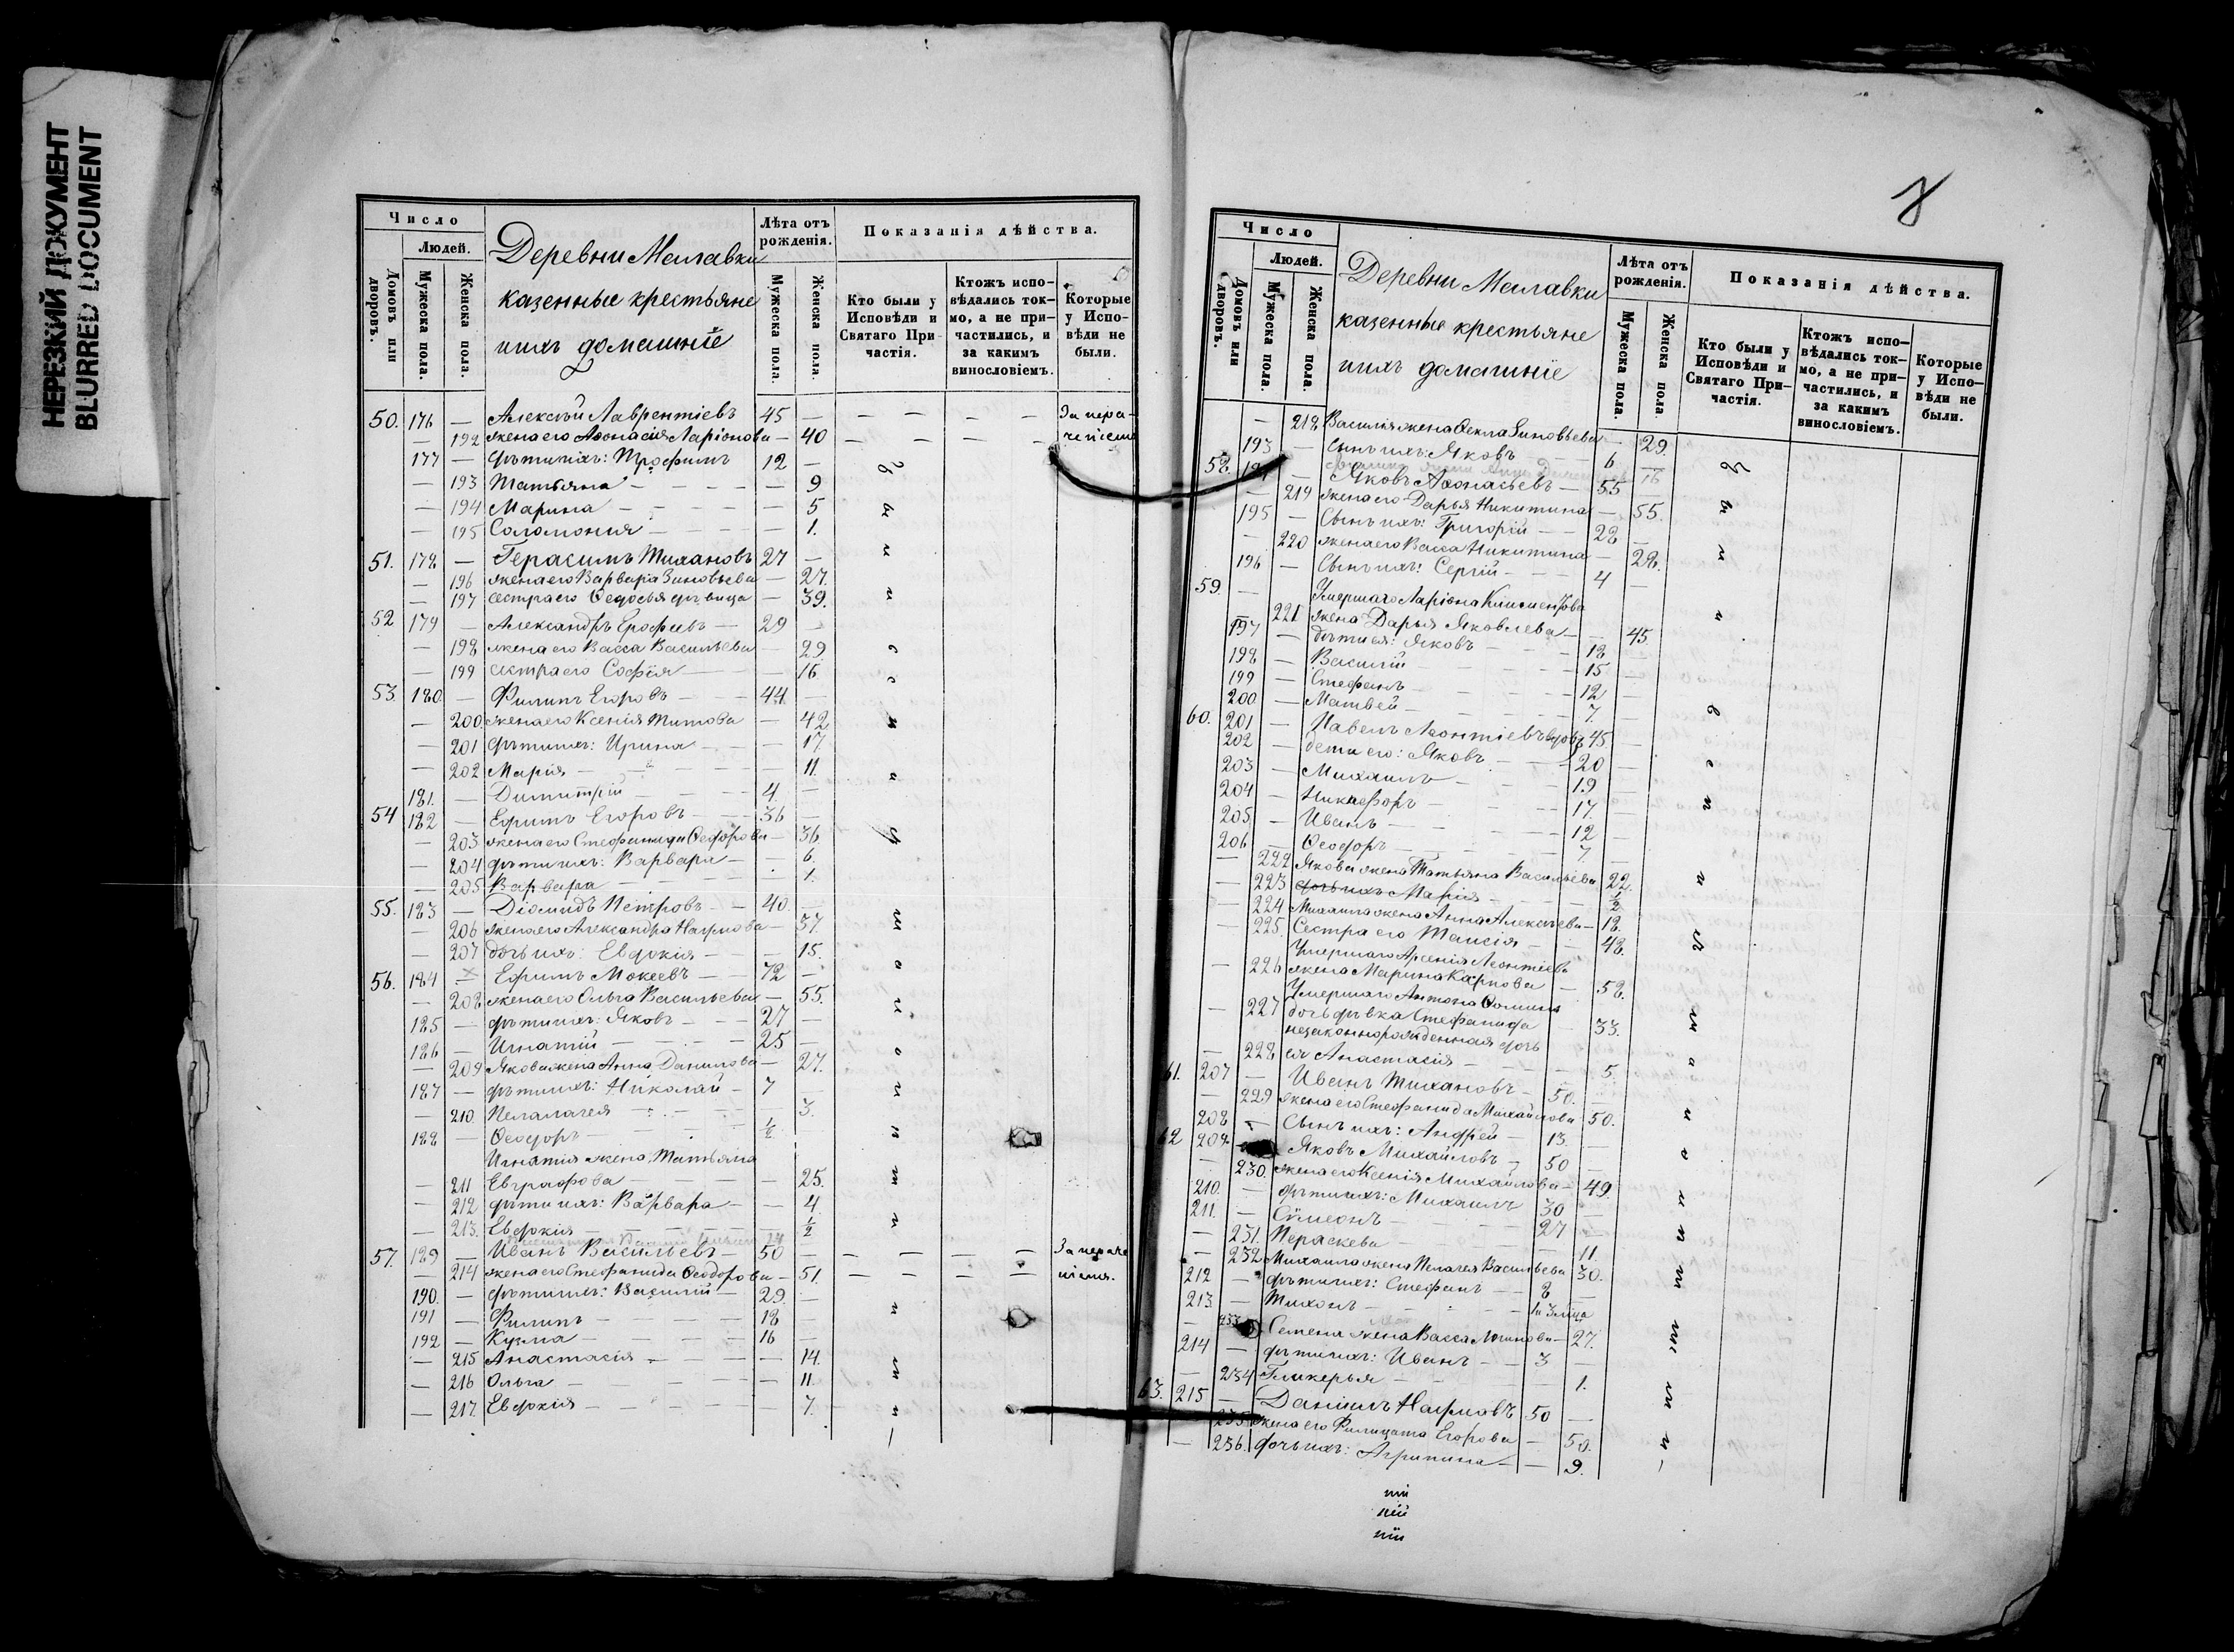 НЕРЕЗКИЙ ДОКУМЕНТ
BLURRED DOCUMENT
Число
Людей.
Домовъ или дворовъ.
Мужеска пола.
Женска пола.
Деревни Малавки
казенные крестьяне
ихъ домашніе
Лѣта отъ рожденія.
Мужеска пола.
Женска пола.
Показанія дѣйства.
Кто были у Исповѣди и Святаго Причастія.
Ктожъ исповѣдались токмо, а не причастились, и за какимъ винословіемъ.
Которые у Исповѣди не были.
50. 176 — Алексѣй Лаврентіевъ 45 — — — — — За нера-
— 192 жена его Аѳонасія Ларіонова — 40 — — — — ченіемъ
177 — дѣти ихъ: Трофимъ 12 —
— 193 Татьяна — 9
— 194 Марина — 5
— 195 Соломонія — 1.
51. 178 — Герасимъ Тихановъ 27 —
— 196 жена его Варвара Зиновьева — 27.
— 197 сестра его Ѳедосья дѣвица — 39.
52 179 — Александръ Ерофеевъ — 29 —
— 198 жена его Васса Васильева — 29
— 199 сестра его Софія — 16
53. 180 — Филипъ Егоровъ 44 —
— 200 жена его Ксенія Титова — 42
— 201 дѣти ихъ: Ирина — 17.
— 202 Марія — 11.
181. — Димитрій 4. —
54 182 — Ефимъ Егоровъ 36 —
— 203 жена его Стефанида Ѳедорова — 36
— 204 дѣти ихъ: Варвара — 6.
— 205 Варвара — 1.
55. 183 — Діомидъ Петровъ 40 —
— 206 жена его Александра Наумова — 37.
— 207 дочь ихъ: Евдокія — 15.
56. 184 — Ефимъ Мокеевъ 72 —
— 208 жена его Ольга Васильева — 55.
185 — дѣти ихъ: Яковъ 27 —
186 — Игнатій 25 —
— 209 Якова жена Анна Данилова — 27.
187 — дѣти ихъ: Николай 7
— 210 Пелалагея — 3.
188 — Ѳеодоръ ½
Игнатія жена Татьяна
— 211 Евграфова — 25.
— 212 дѣти ихъ: Варвара — 4.
— 213. Евдокія — ½
57. 189 — Иванъ Васильевъ 50 — — — — — За нераче
— 214 жена его Стефанида Ѳеодорова — 51. — — — — ніемъ.
190. — дѣти ихъ: Василій 29. —
191 — Филипъ 18 —
192 — Кузма 16 —
— 215 Анастасія — 14.
— 216 Ольга — 11.
— 217. Евдокія — 7.
Число
Людей.
Домовъ или дворовъ.
Мужеска пола.
Женска пола.
Деревни Малавки
казенные крестьяне
ихъ домашніе
Лѣта отъ рожденія.
Мужеска пола.
Женска пола.
Показанія дѣйства.
Кто были у Исповѣди и Святаго Причастія.
Ктожъ исповѣдались токмо, а не причастились, и за какимъ винословіемъ.
Которые у Исповѣди не были.
— 218 Василія жена Ѳекла Зиновьева — 29.
193 — сынъ ихъ: Яковъ 6 —
58. — Яковъ Аѳонасьевъ 55 —
— 219 жена его Дарья Никитина — 55.
195 — Сынъ ихъ: Григорій 28 —
— 220 жена его Васса Никитина — 28.
196 — Сынъ ихъ: Сергій 4 —
59. — Умершаго Ларіона Климентова
— 221 жена Дарья Яковлева — 45
197 — дѣти ея: Яковъ 18 —
198 — Василій 15 —
199 — Стефанъ 12 —
200 — Матвей 7. —
60. 201 — Павелъ Леонтіевъ вдовъ 45. —
202 — дети его: Яковъ 20 —
203 — Михаилъ 19 —
204 — Никифоръ 17. —
205 — Иванъ 12 —
206 — Ѳеодоръ 7. —
— 222 Якова жена Татьяна Васильева 22.
— 223 дочь ихъ Марія ½
— 224 Михаила жена Анна Алексеева 18.
— 225. Сестра его Таисія 48.
Умершаго Арсенія Леонтіева
— 226 жена Марина Карпова — 58.
Умершаго Антона Ѳомина
— 227 дочь дѣвка Стефанида — 33.
незаконнорожденная дочь
— 228 ея Анастасія 5.
61. 207 — Иванъ Тихановъ 50. —
— 229 жена его Стефанида Михайлова 50.
208 — Сынъ ихъ: Андрей 13. —
62 209 Яковъ Михайловъ 50 —
— 230. жена его Ксенія Михайлова 49.
210. — дѣти ихъ: Михаилъ 30 —
211. — Сумеонъ 27 —
— 231. Параскева — 11
— 232 Михаила жена Пелагея Васильева 30.
212 — дѣти ихъ: Стефанъ 8 —
213. — Тихонъ
— 233 Семена жена Васса Логинова 27.
214 — дѣти ихъ: Иванъ 3 —
— 234 Гликерья — 1.
63. 215 — Даніилъ Наумовъ 50 —
235 жена его Филицата Егорова — 50.
— 236. дочь ихъ: Агрипина — 9.
ній
ній
ній